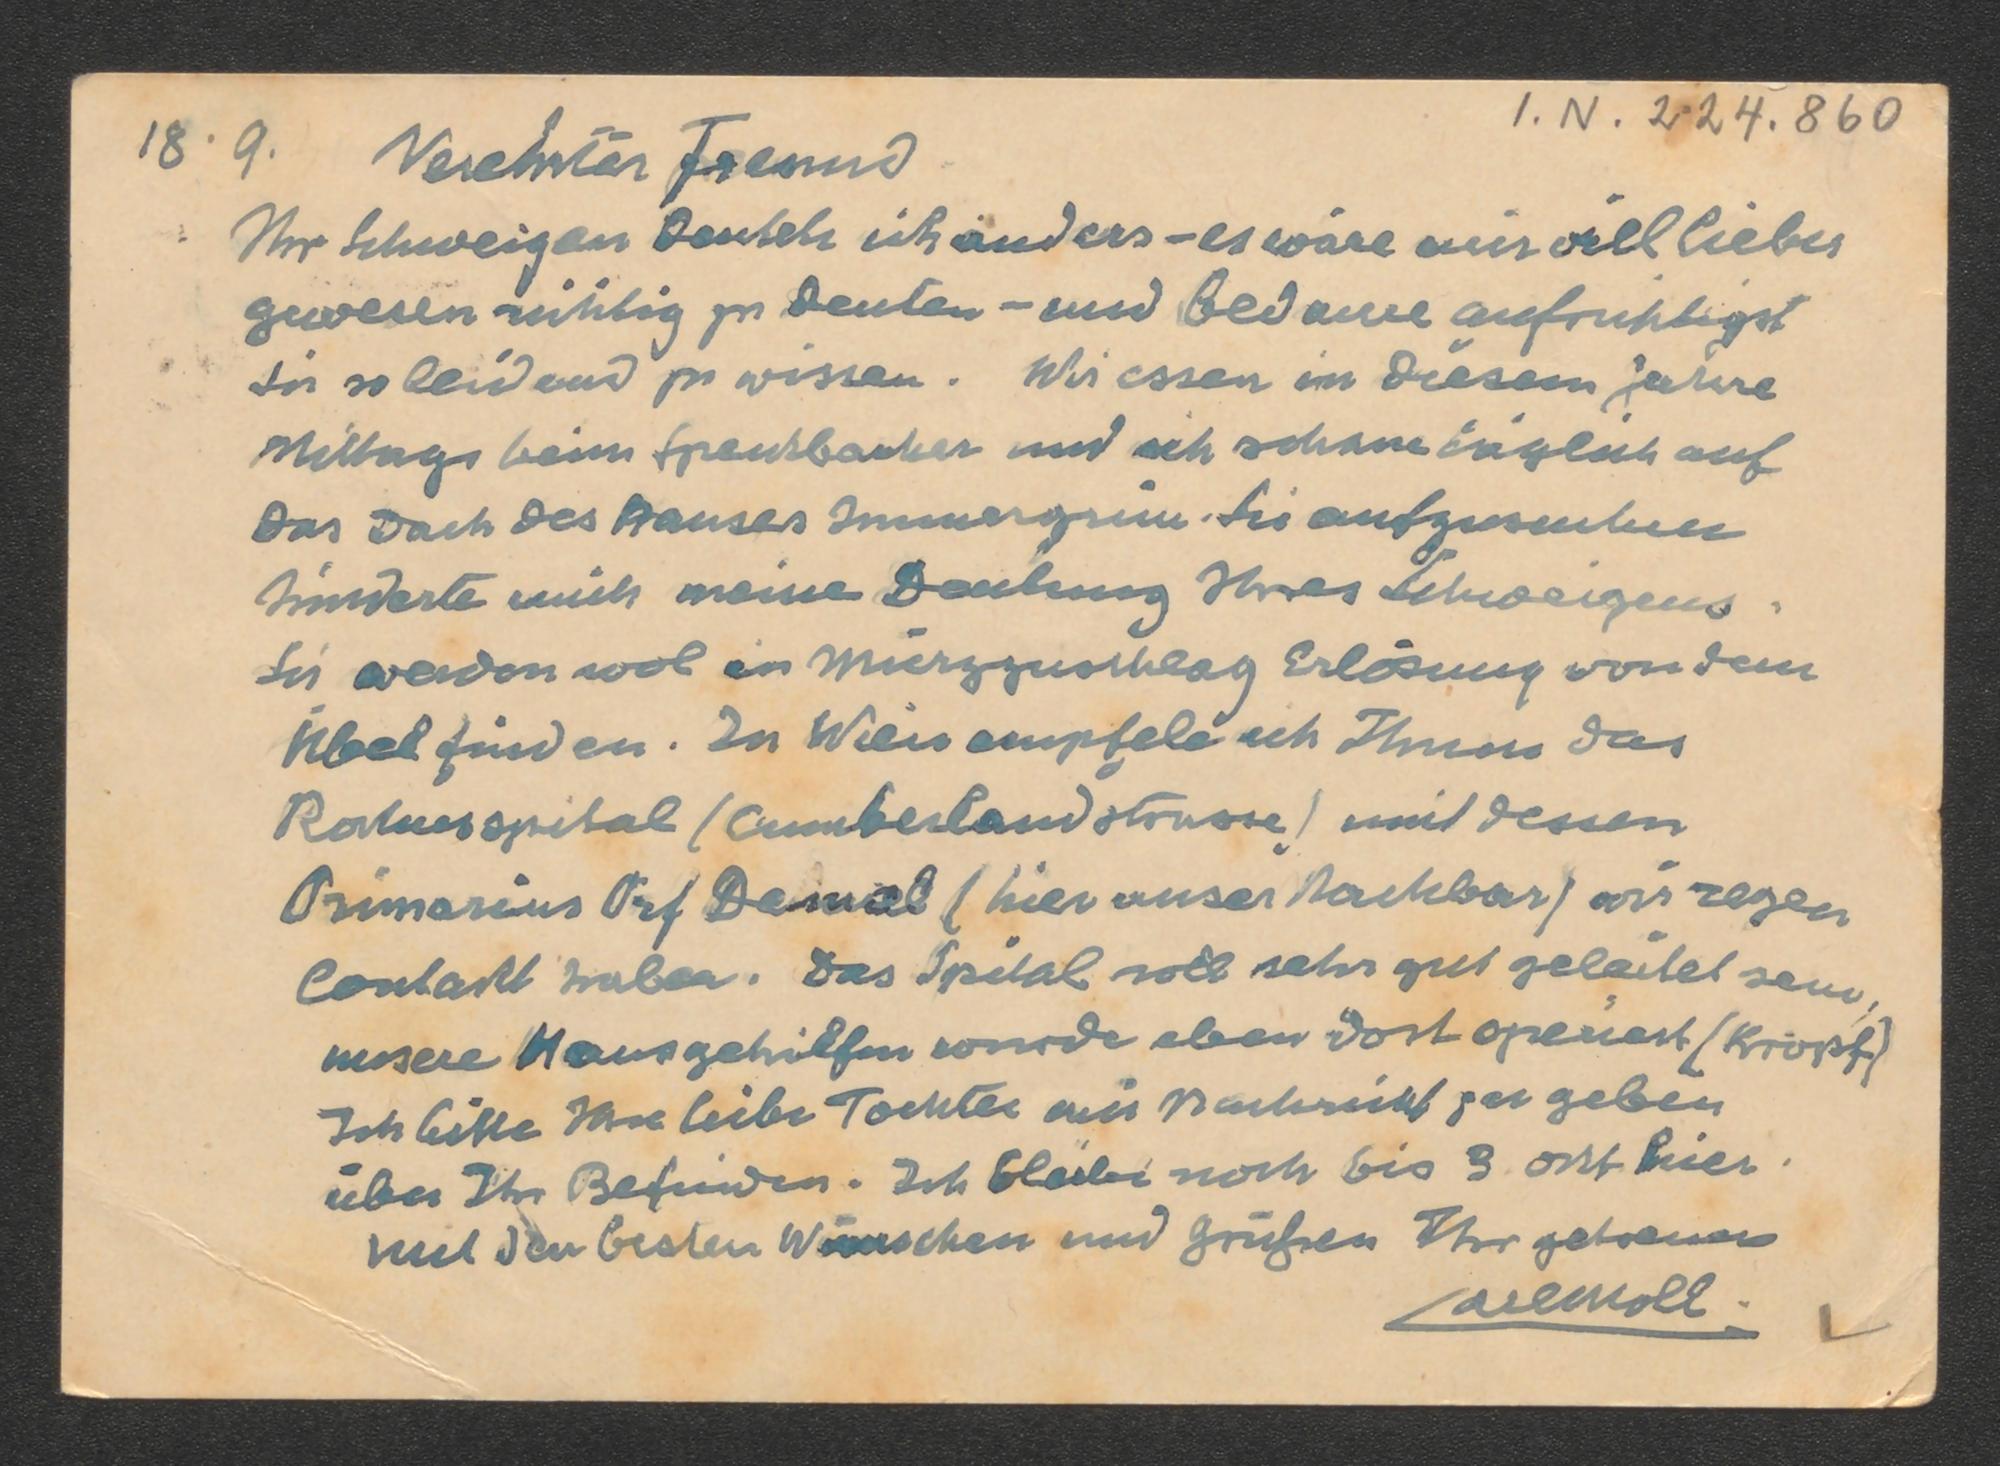 I. N. 224.860
18. 9. Verehrter Freund
Ihr Schweigen deutete ich anders – es wäre mir viell lieber
gewesen richtig zu deuten – und bedaure aufrichtigst
Sie so leidend zu wissen. Wir essen in diesem Jahre
Mittags beim und ich schaue täglich auf
das Dach des Hauses Immergrün. Sie aufzusuchen
hinderte mich meine Deutung Ihres Schweigens.
Sie werden wol in Mürzzuschlag Erlösung von dem
Übel finden. In Wien empfele ich Ihnen das
Rochusspital (Cumberlandstrasse) mit dessen
Primarius Prf Demel (hier unser Nachbar) wir regen
Contackt haben. Das Spital soll sehr gut geleitet sein,
unsere Hausgehilfin wurde eben dort operiert (Kropf)
Ich bitte Ihre liebe Tochter mir Nachricht zu geben
über Ihr Befinden. Ich bleibe noch bis 3 Okt hier.
Mit den besten Wünschen und Grüßen Ihr getreuer
Carl Moll.